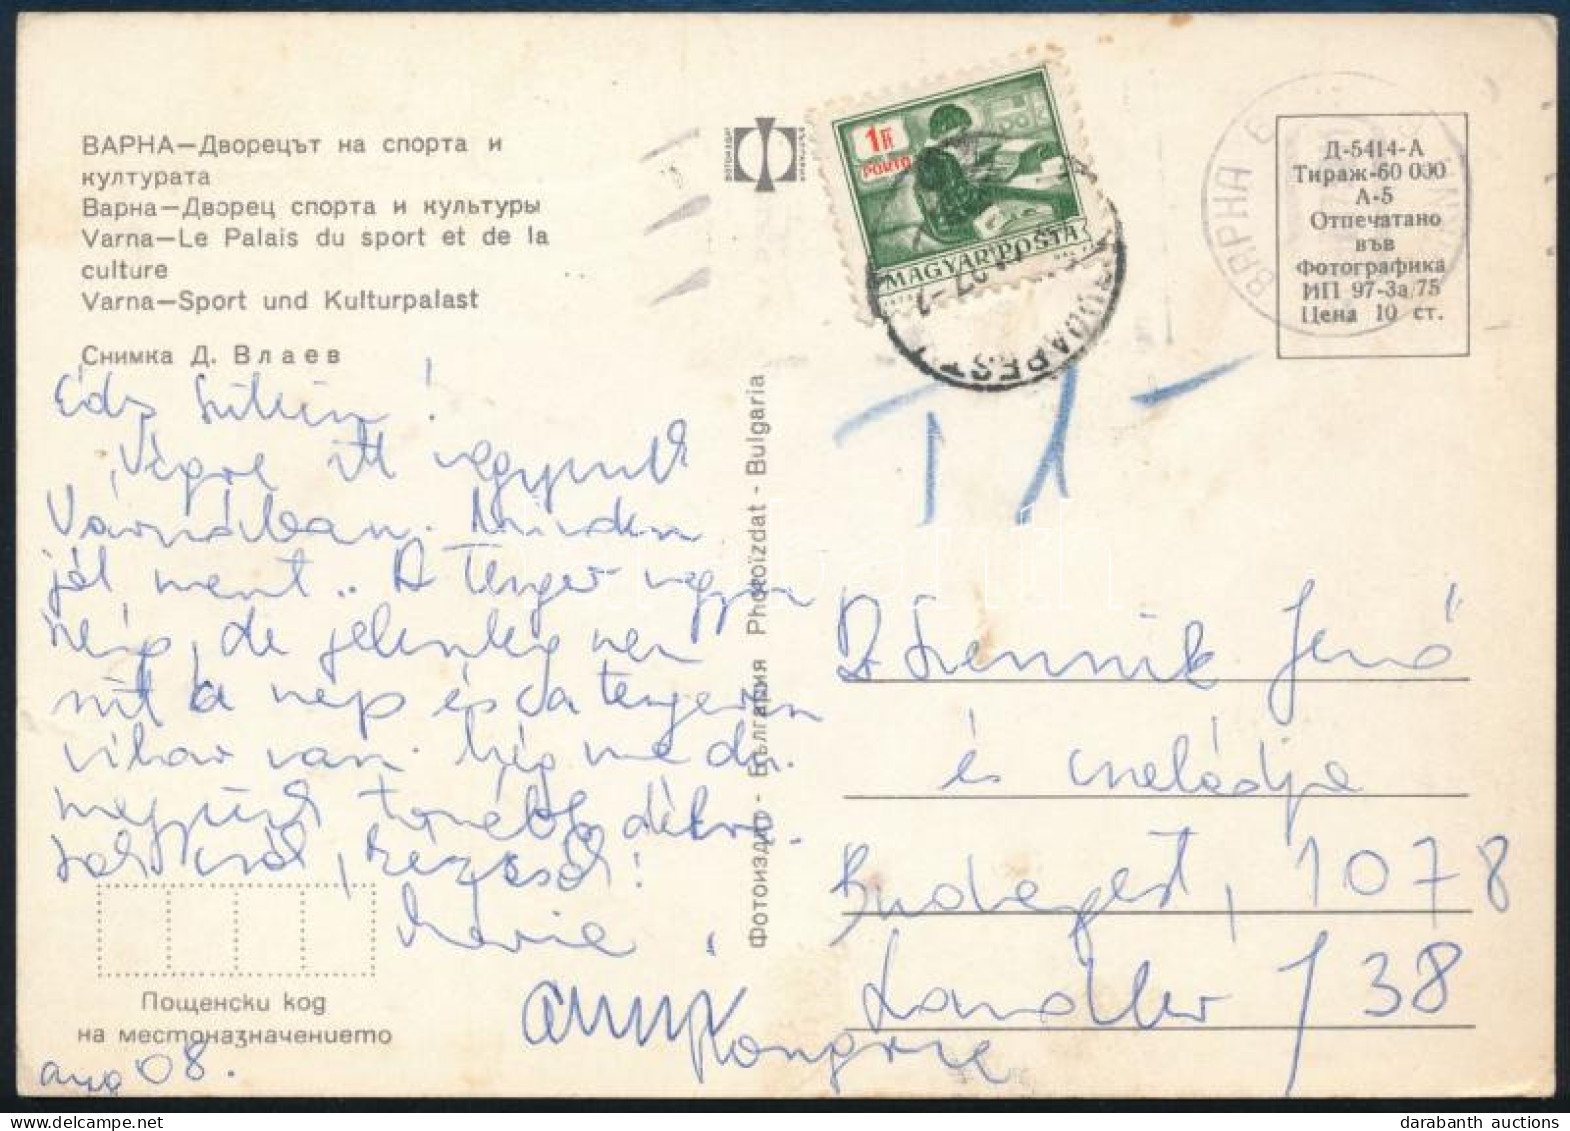 ВАРНА—Дворецът на спорта и
културата
Варна—Дворец спорта и культуры
Varna—Le Palais du sport et de la
culture
Varna—Sport und Kulturpalast
Снимка Д. Влаев
Édes
Végre itt vagyunk
Várnában. Minden
jól ment.. A Tenger nagyon
szép, de jelenleg nem
süt a nap és a tengeren
vihar van. Még ma
megyünk tovább
Marie
Пощенски код
на местоназначението
aug 08.
Фотоиздат - България Photoizdat - Bulgaria
ФОТОИЗДАТ
БЪЛГАРИЯ
1 Ft
PORTO
MAGYAR POSTA
BUDAPEST
ВАРНА
Д-5414-А
Тираж-60 000
А-5
Отпечатано
във
Фотографика
ИП 97-3а/75
Цена 10 ст.
T 1-
Dr Jenő
és családja
Budapest, 1078
Landler / 38
Hongrie
darabanth
darabanth auctions